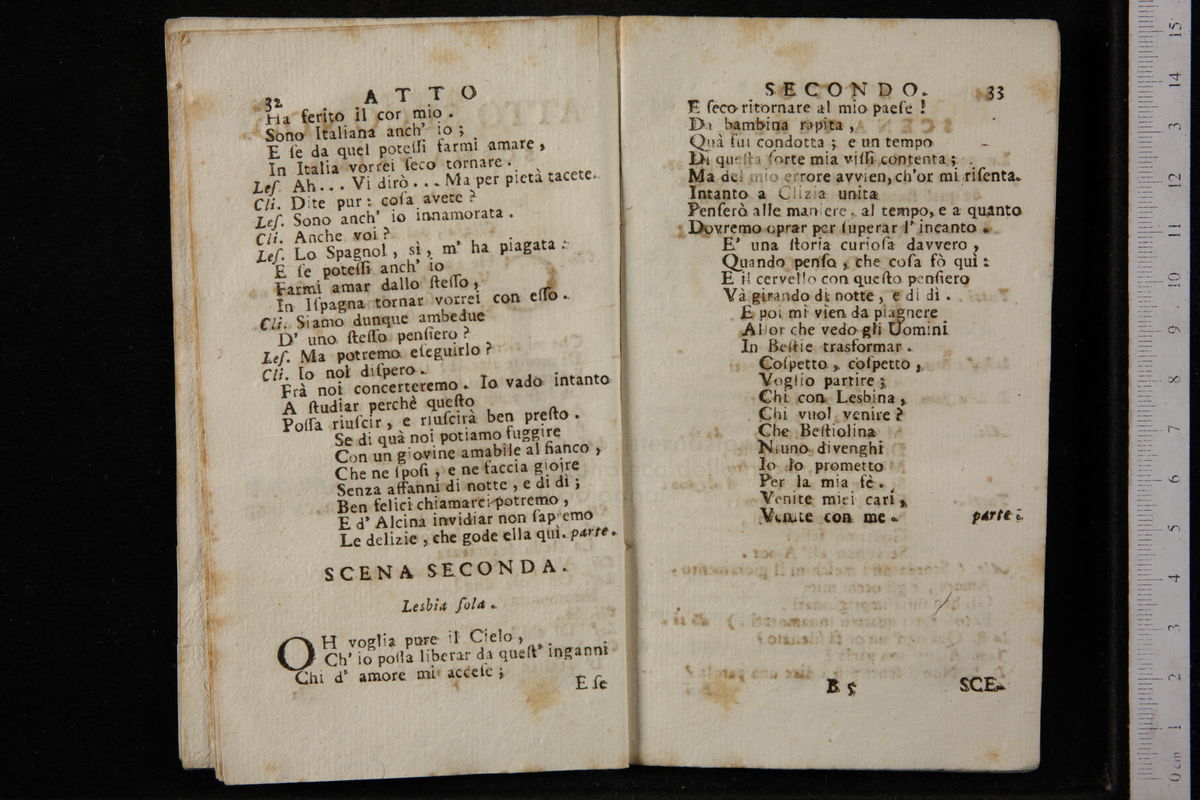 32 ATTO
Ha ferito il cor mio.
Sono Italiana anch' io;
E ſe da quel poteſſi farmi amare,
In Italia vorrei ſeco tornare.
Leſ. Ah... Vi dirò... Ma per pietà tacete.
Cli. Dite pur: coſa avete?
Leſ. Sono anch' io innamorata.
Cli. Anche voi?
Leſ. Lo Spagnol, sì, m' ha piagata:
E ſe poteſſi anch' io
Farmi amar dallo ſteſſo,
In Iſpagna tornar vorrei con eſſo.
Cli. Siamo dunque ambedue
D' uno ſteſſo penſiero?
Leſ. Ma potremo eſeguirlo?
Cli. Io nol diſpero.
Frà noi concerteremo. Io vado intanto
A ſtudiar perchè queſto
Poſſa riuſcir, e riuſcirà ben preſto.
Se di quà noi potiamo fuggire
Con un giovine amabile al fianco,
Che ne ſpoſi, e ne faccia gioire
Senza affanni di notte, e di dì;
Ben felici chiamarci potremo,
E d' Alcina invidiar non ſapremo
Le delizie, che gode ella quì. parte.
SCENA SECONDA.
Lesbia ſola.
OH voglia pure il Cielo,
Ch' io poſſa liberar da queſt' inganni
Chi d' amore mi acceſe;
E ſe
SECONDO. 33
E ſeco ritornare al mio paeſe!
Da bambina rapita,
Quà fui condotta; e un tempo
Di queſta ſorte mia viſſi contenta;
Ma del mio errore avvien, ch'or mi riſenta.
Intanto a Clizia unita
Penſerò alle maniere, al tempo, e a quanto
Dovremo oprar per ſuperar l' incanto.
E' una ſtoria curioſa davvero,
Quando penſo, che coſa fò quì:
E il cervello con queſto penſiero
Và girando di notte, e di dì.
E poi mi vien da piagnere
Allor che vedo gli Uomini
In Beſtie trasformar.
Coſpetto, coſpetto,
Voglio partire;
Chi con Lesbina,
Chi vuol venire?
Che Beſtiolina
Niuno divenghi
Io lo prometto
Per la mia fè.
Venite miei cari,
Venite con me. parte.
B 5 SCE-